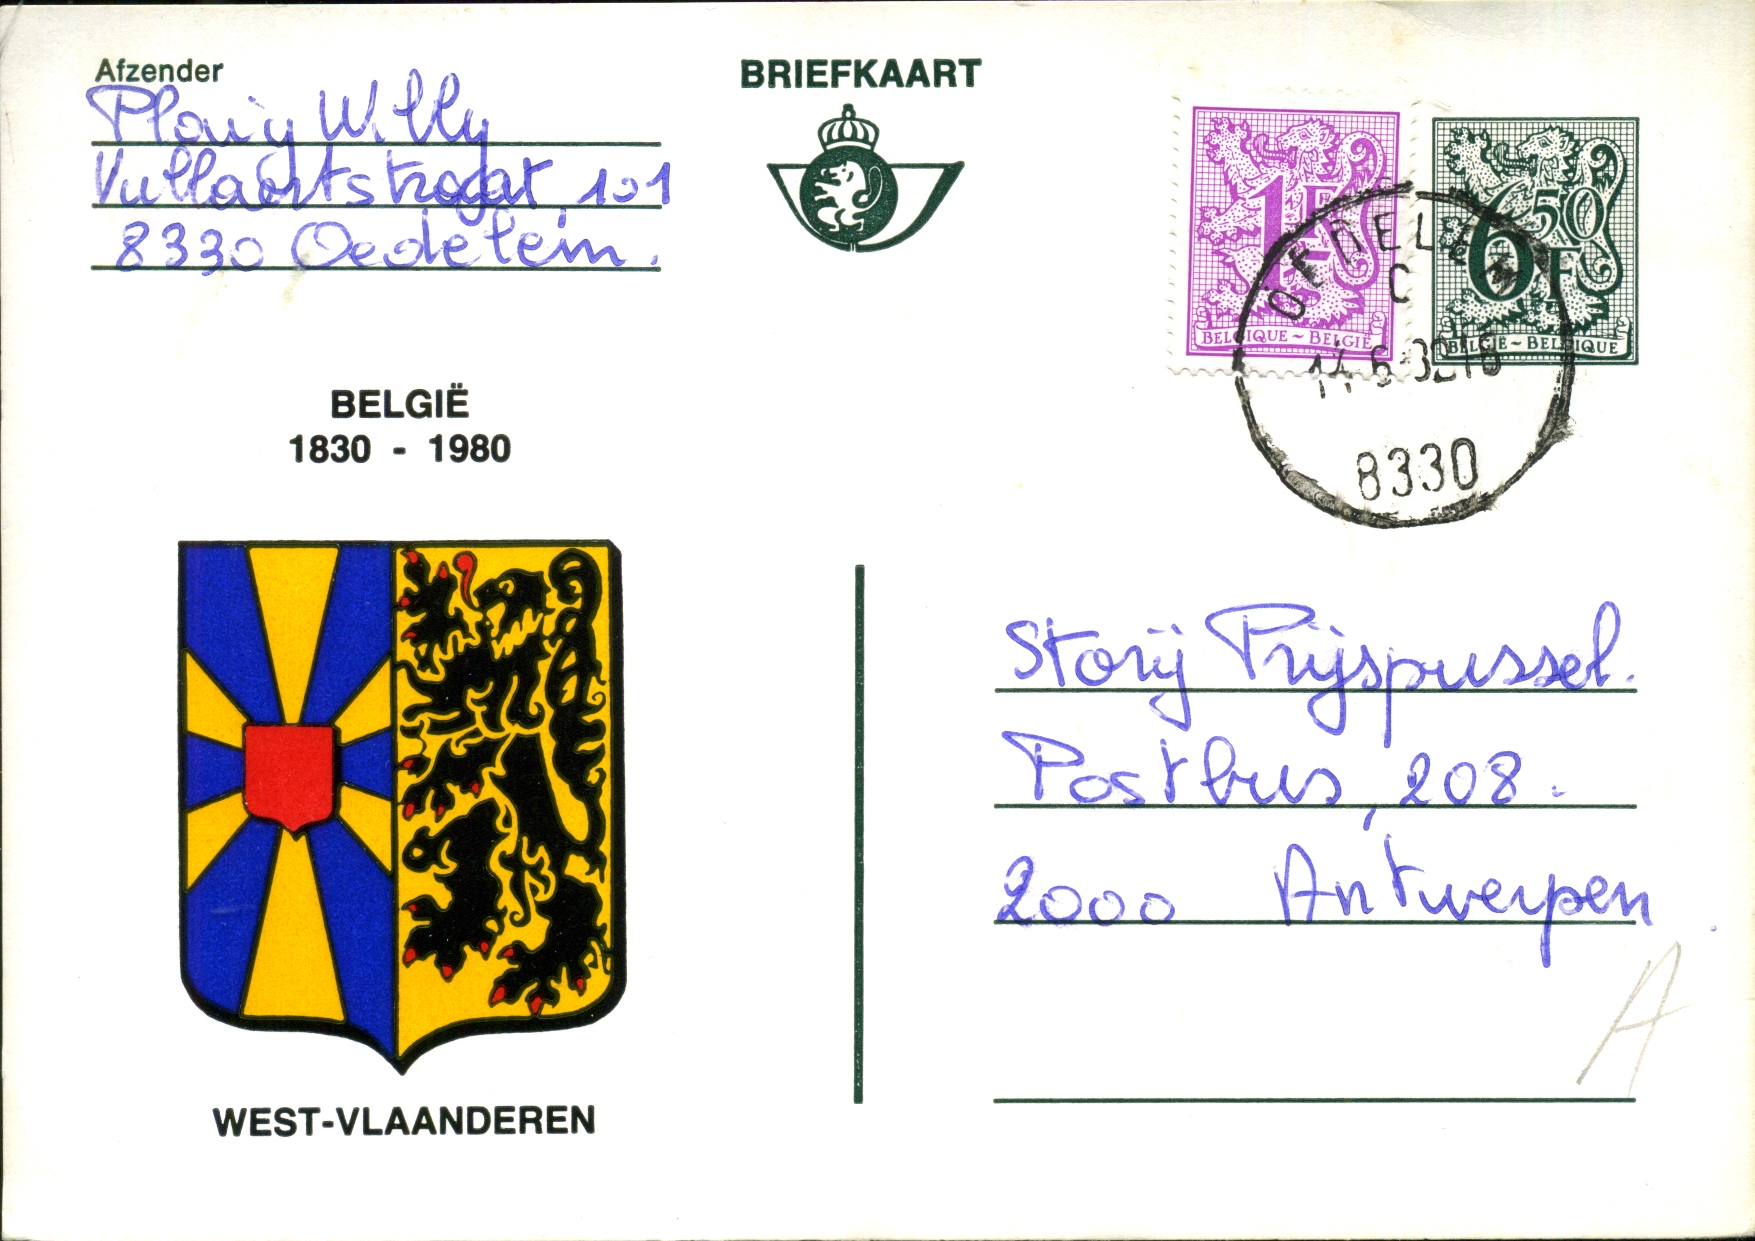 Afzender
Plaicy Willy
Vullaertstraat, 101
8330 Oedelem.
BRIEFKAART
1F
BELGIQUE ~ BELGIË
6F50
BELGIË ~ BELGIQUE
OEDELEM
C
14-6-82 16
8330
BELGIË
1830 - 1980
WEST-VLAANDEREN
Storij Prijspussel.
Postbus, 208.
2000 Antwerpen.
A